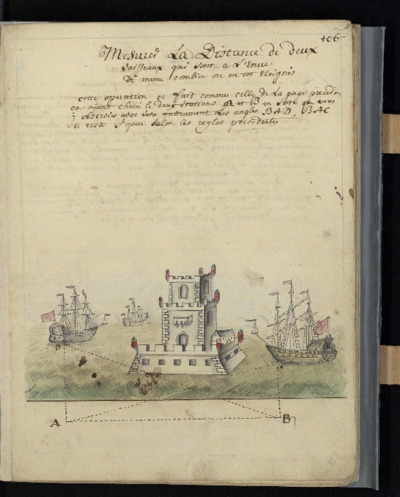 406
Mesurer La Distance de deux
vaisseaux qui sont a L'Encre
Et même combien on en est Eloignés
cette operation ce fait comme celle de La page preceden
ayant choisi les deux stations A et B en sorte que vous
observés avec votre instrument Les angles BAD, BAC
le reste selon les regles precedentes
A
B